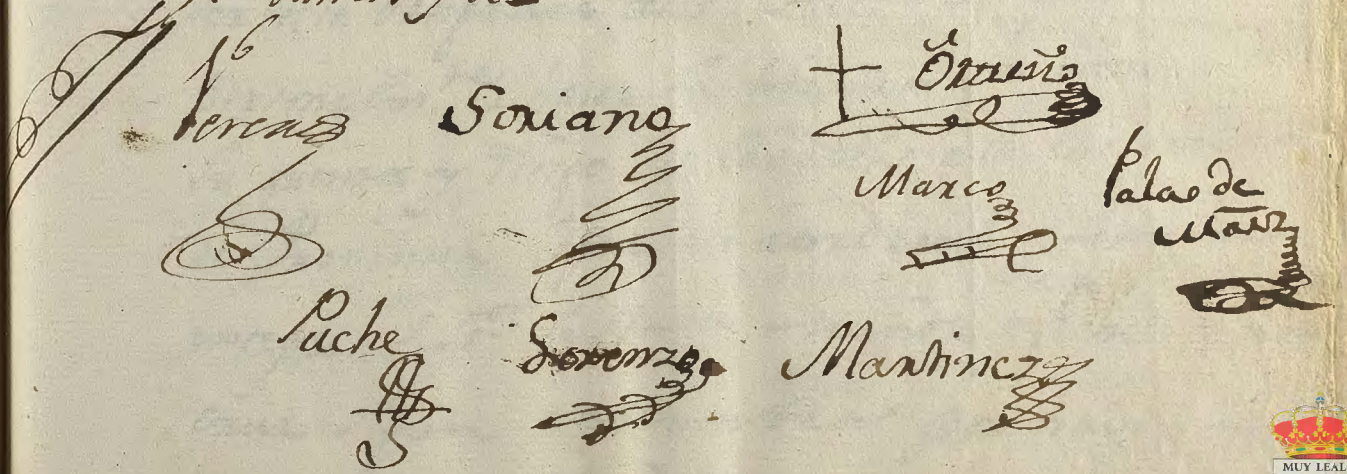 Soriano
Ortuño
Marco
Palao de
Puche
Lorenzo
Martinez
MUY LEAL